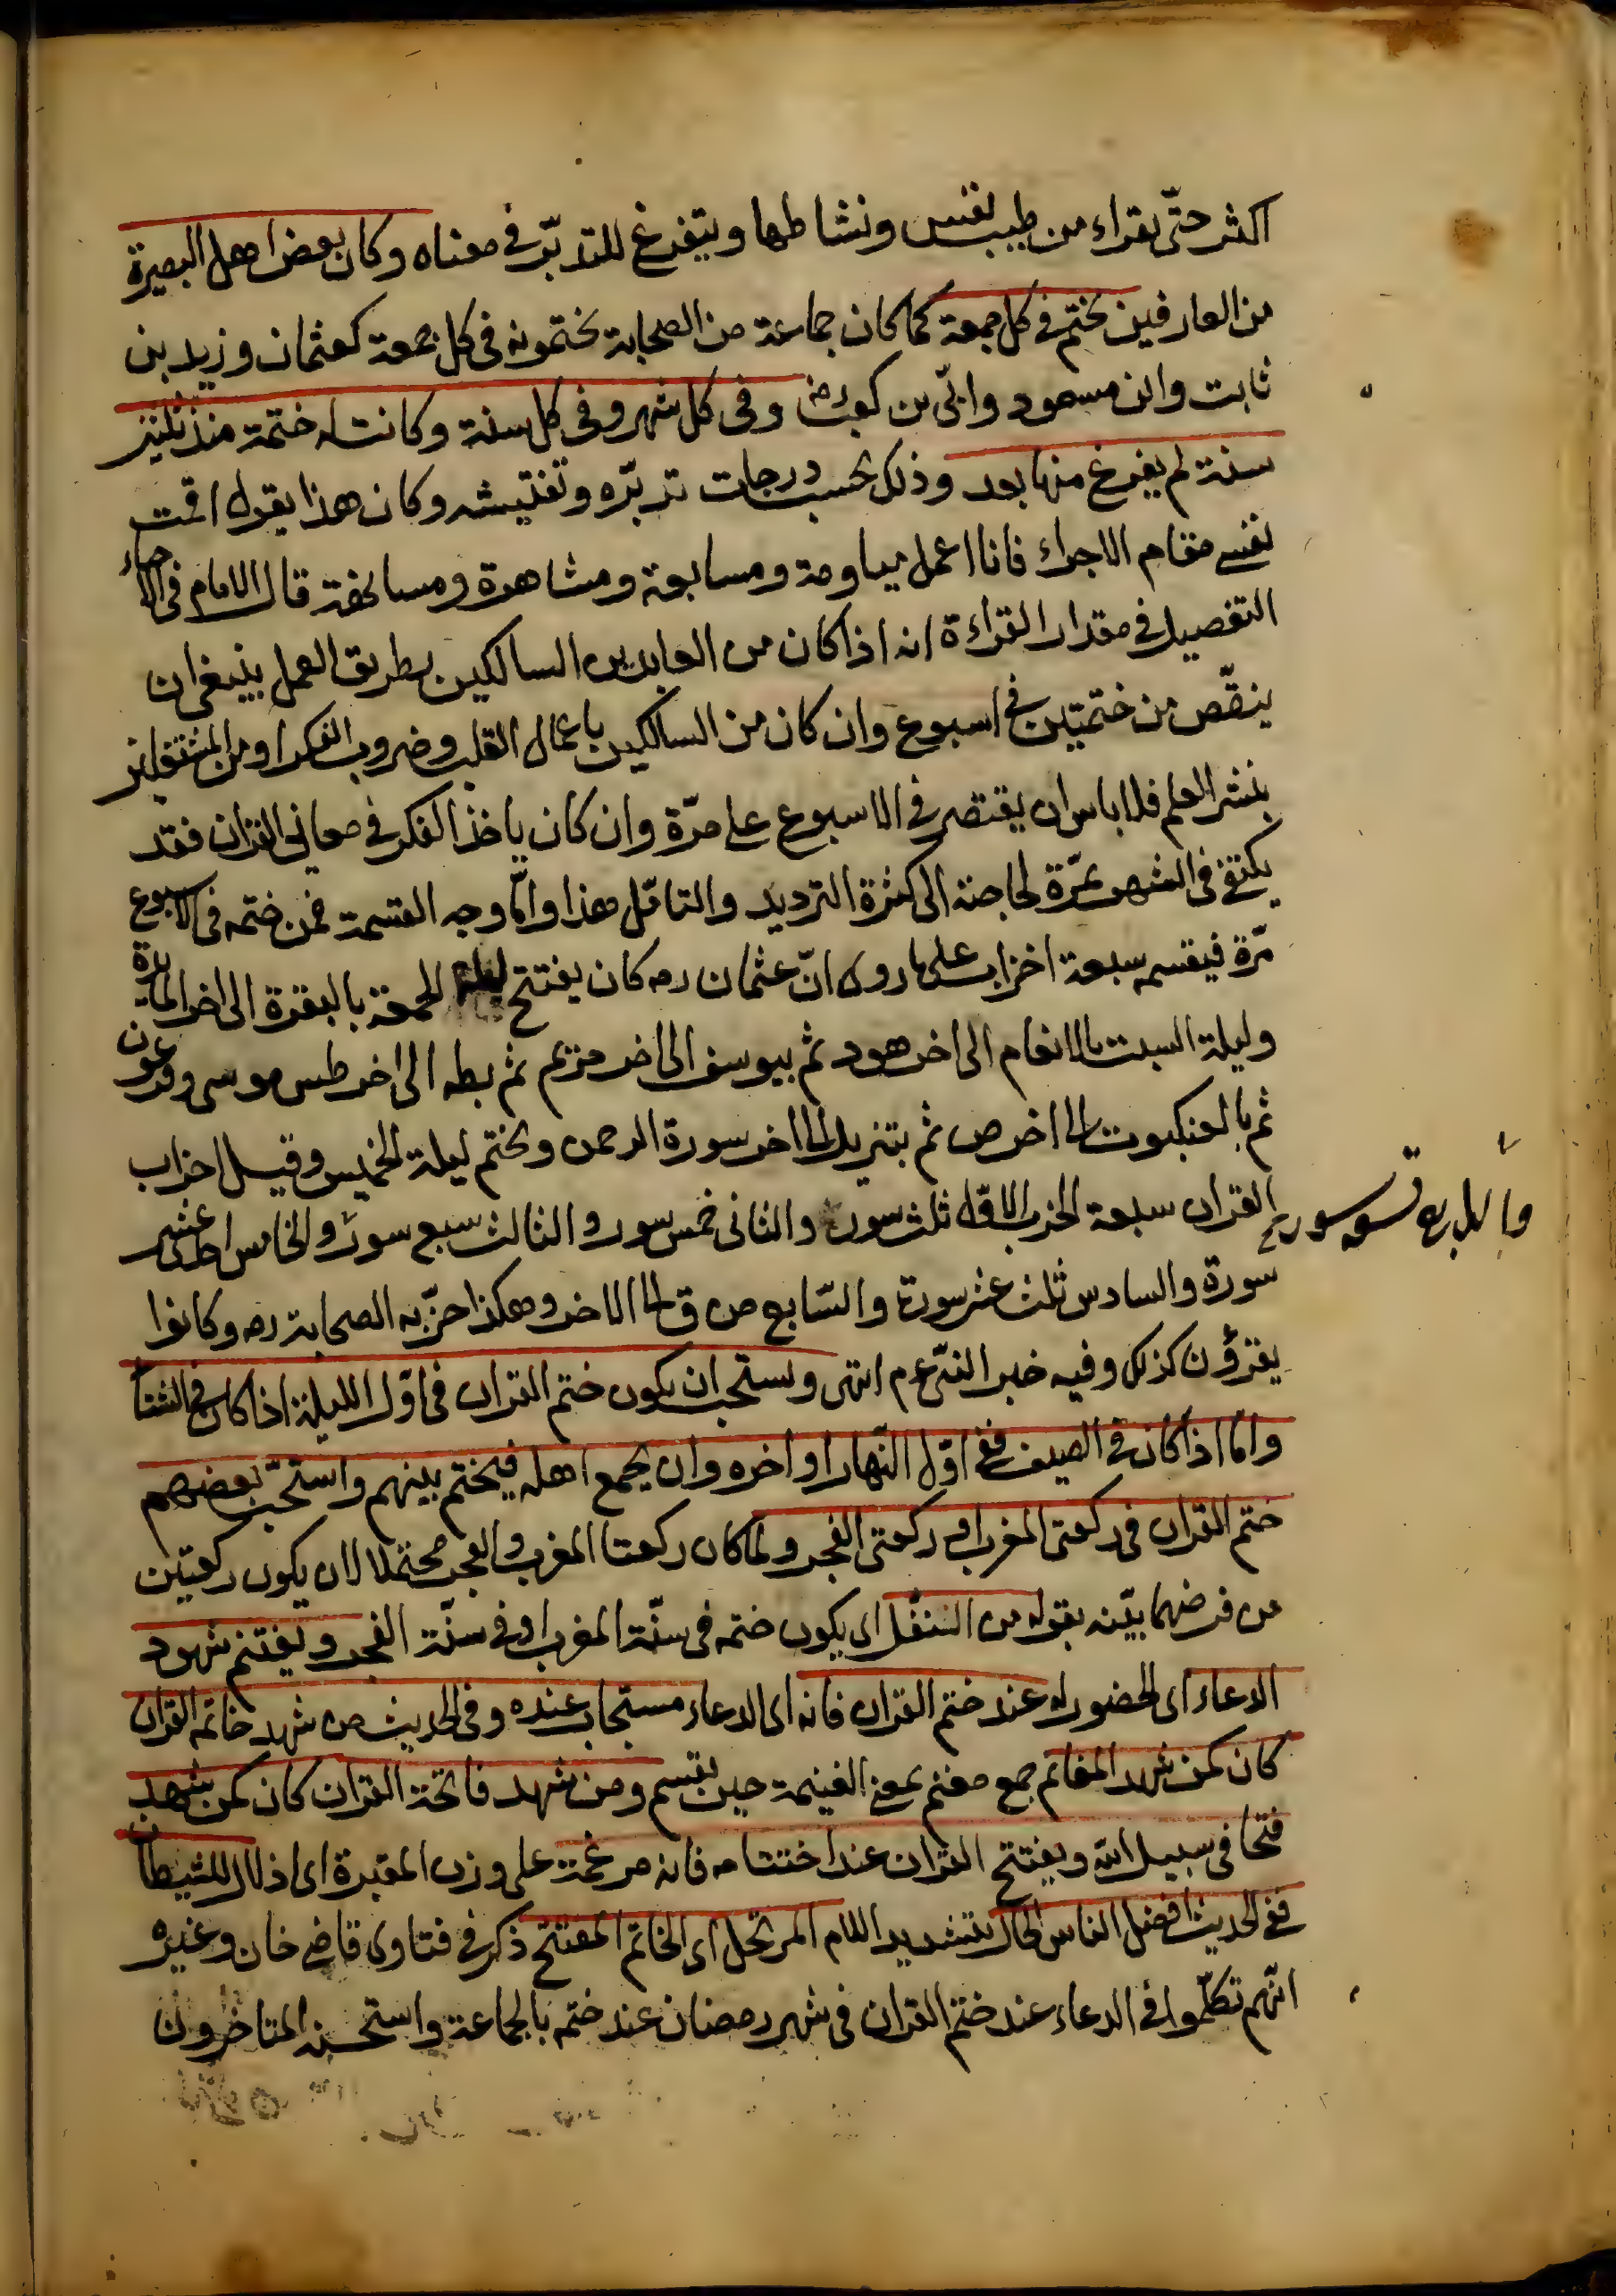 اكثر حتّى يقراء من طيب نفس ونشاطها ويتفرغ للتدبّر في معناه وكان بعض اهل البصيرة
من العارفين يختم في كل جمعة كما كان جماعة من الصحابة يختمونه في كل جمعة كعثمان وزيد بن
ثابت وابن مسعود وابىّ بن كعب رض وفى كل شهر وفى كل سنة وكانت له ختمة منذ ثلثين
سنة لم يفرغ منها بعد وذلك بحسب درجات تدبّره وتفتيشه وكان هذا يقول اقمت
نفسى مقام الاجراء فانا اعمل مياومة ومسابعة ومشاهرة ومسانهة قال الامام فى الاحياء
التفصيل في مقدار القراءة انه اذا كان من العابدين السالكين بطريق العمل ينبغى ان
ينقّص من ختمتين في اسبوع وان كان من السالكين باعمال القلب وضروب الفكر او من المشتغلين
بنشر العلم فلا باس ان يقتصر في الاسبوع على مرّة وان كان ياخذ الفكر في معانى القران فقد
يكتفى فى الشهر بمرّة لحاجته الى كثرة الترديد والتامّل هذا وامّا وجه القسمة فمن ختمه فى الاسبوع
مرّة فيقسمه سبعة احزاب على ما روى انّ عثمان رض كان يفتتح ليلة الجمعة بالبقرة الى اخر المايدة
وليلة السبت بالانعام الى اخر هود ثم بيوسف الى اخر مريم ثم بطه الى اخر طسم موسى وفرعون
ثم بالعنكبوت الى اخر ص ثم بتنزيل الى اخر سورة الرحمن ويختم ليلة الخميس وقيل احزاب
القران سبعة الحزب الاوّل ثلث سور والثانى خمس سور والثالث سبع سور والخامس احد عشر
والرابع تسع سور
سورة والسادس ثلث عشر سورة والسّابع من ق الى الاخر وهكذا حزّبه الصحابة رض وكانوا
يقرؤن كذلك وفيه خبر النبىّ عم انتهى ويستحب ان يكون ختم القران فى اوّل الليلة اذا كان في الشتا
وامّا اذا كان في الصيف ففى اوّل النّهار او اخره وان يجمع اهله فيختم بينهم واستحبّ بعضهم
ختم القران فى ركعتى المغرب او ركعتى الفجر ولما كان ركعتا المغرب والفجر محتملا لان يكون ركعتين
من فرضهما بيّنه بقوله من التنفّل اى يكون ختمه فى سنّة المغرب او فى سنّة الفجر ويغتنم شهود
الدعاء اى الحضور له عند ختم القران فانه اى الدعاء مستجاب عنده وفى الحديث من شهد خاتمة القران
كان كمن شهد المغانم جمع مغنم بمعنى الغنيمة حين تقسم ومن شهد فاتحة القران كان كمن شهد
فتحا فى سبيل الله ويفتتح القران عند اختتامه فانه مرغمة على وزن المقبرة اى اذلال للشيطان
ففى الحديث افضل الناس الحالّ بتشديد اللام المرتحل اى الخاتم المفتتح ذكر فى فتاوى قاضى خان وغيره
انّهم تكلّموا فى الدعاء عند ختم القران فى شهر رمضان عند ختم بالجماعة واستحسنه المتاخرون